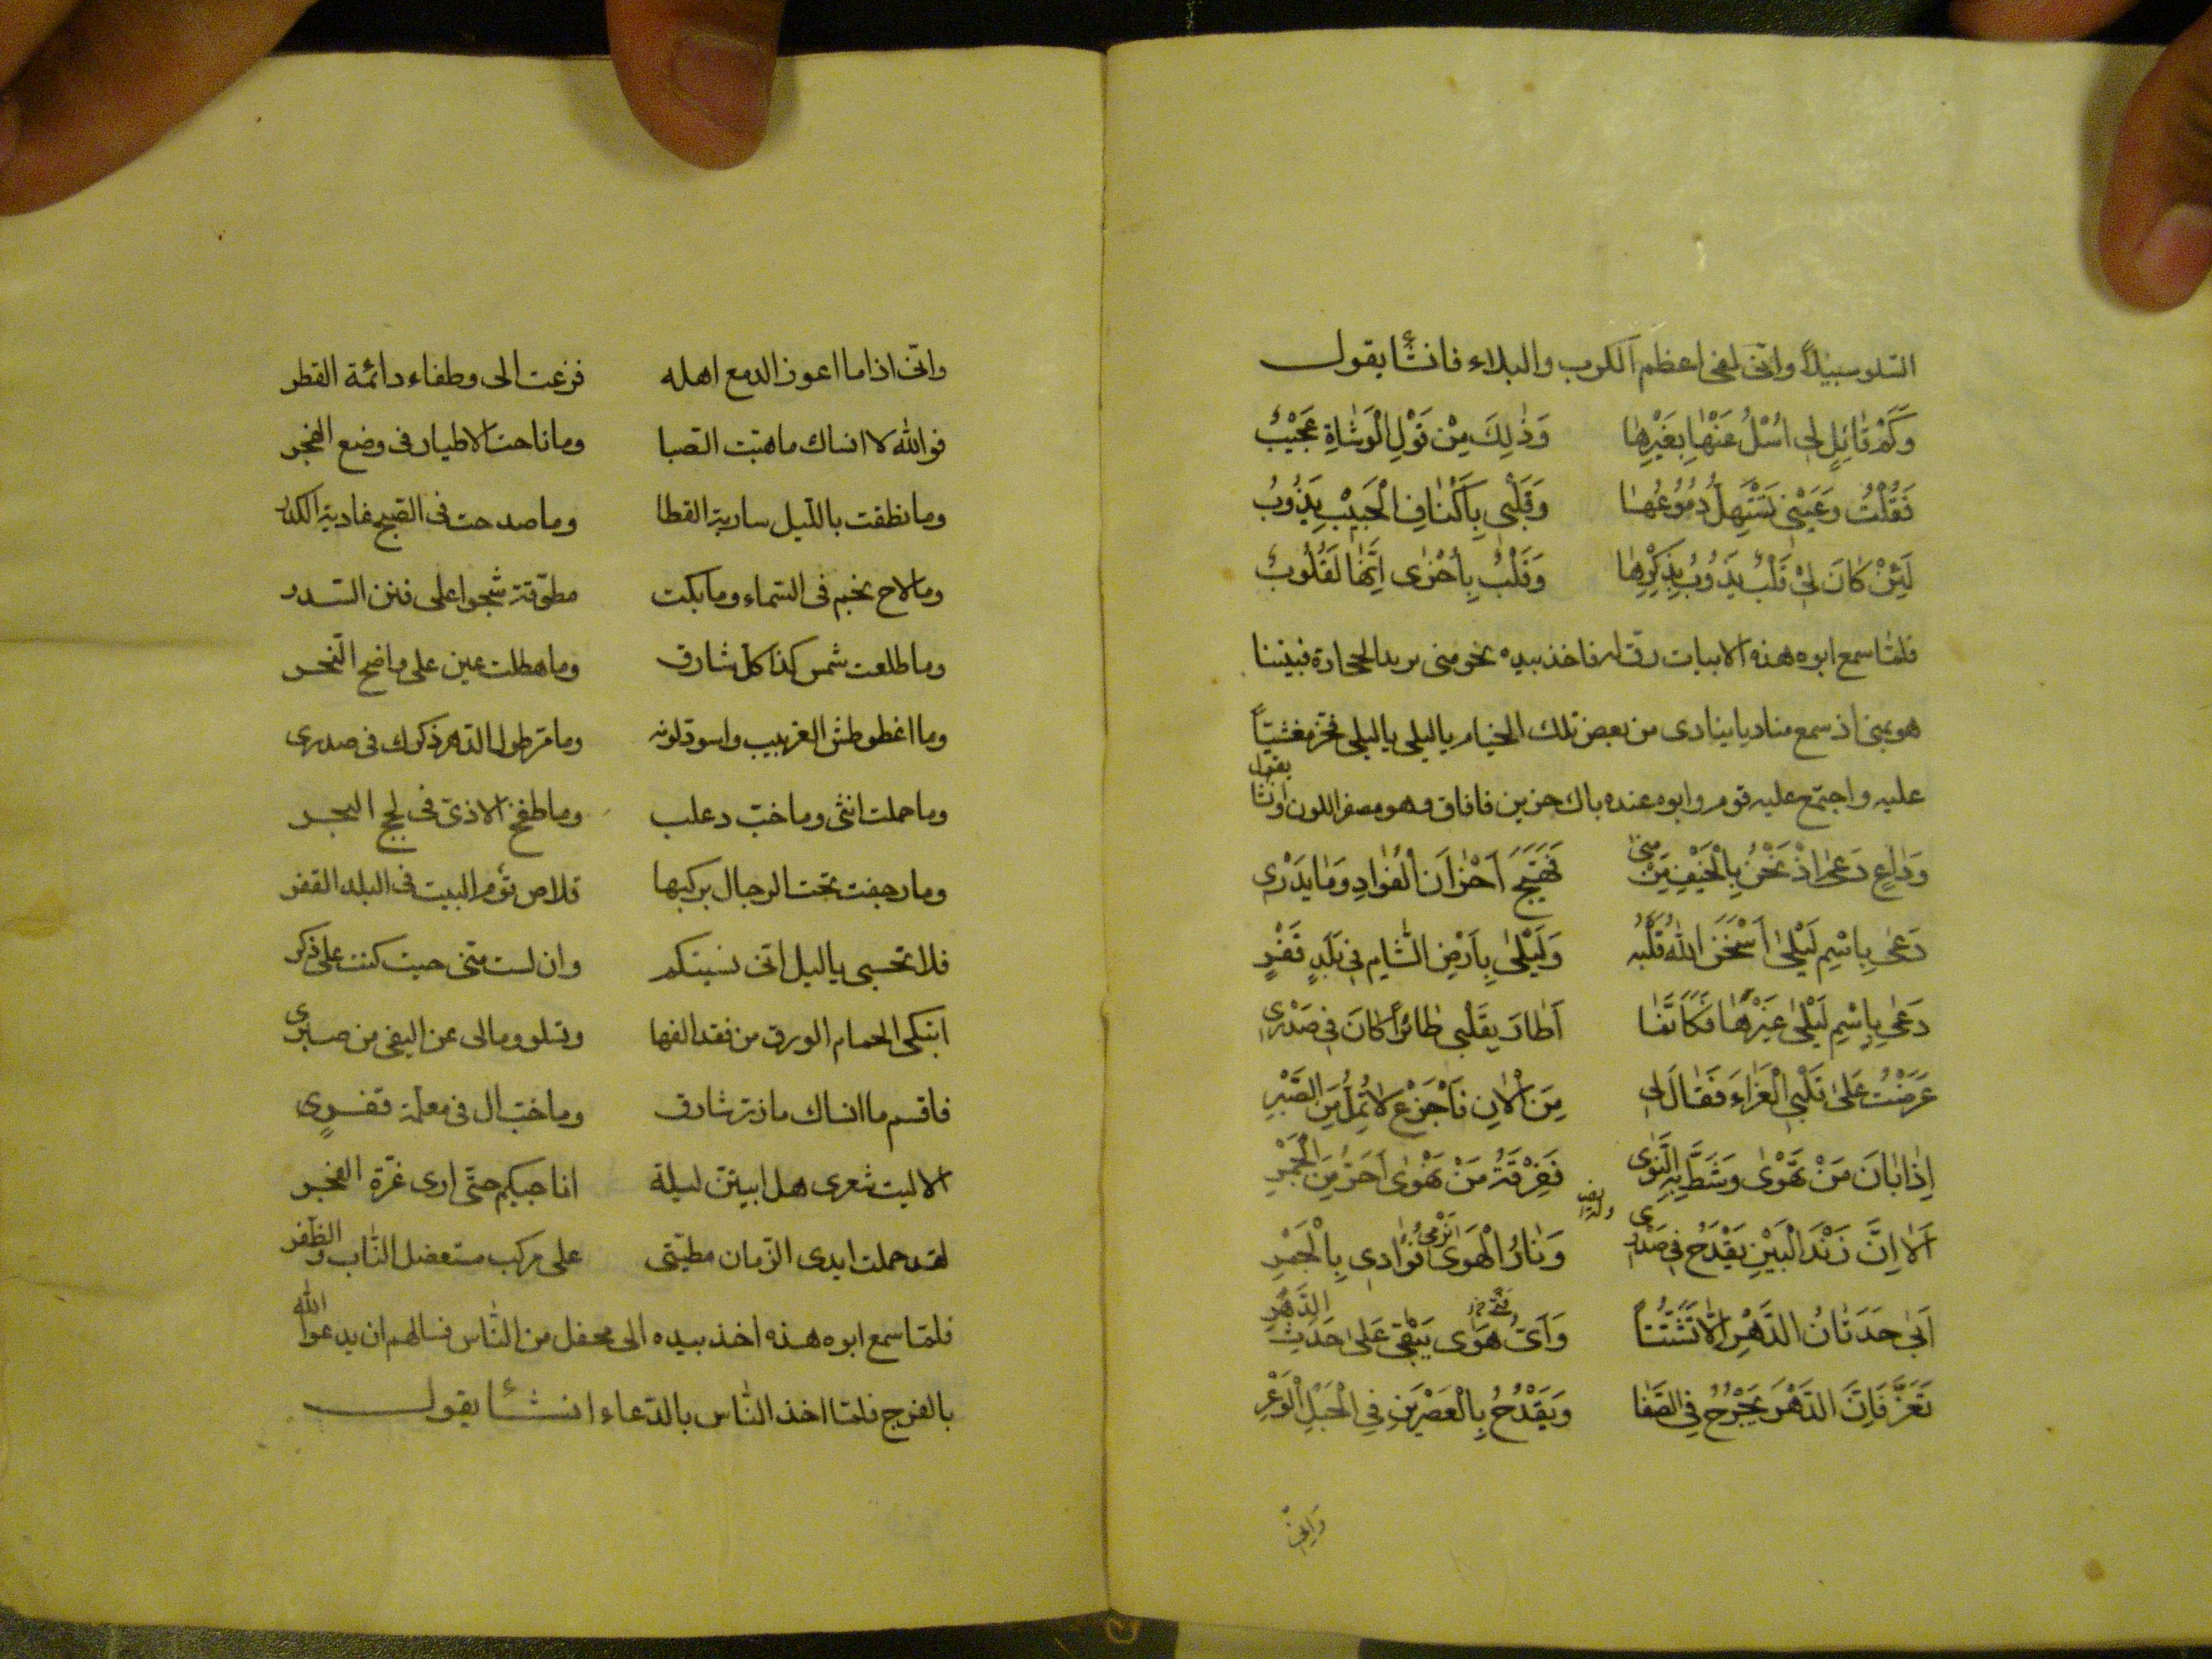 السلو سبيلاً وانّى لفى اعظم الكرب والبلاء فانشأ يقول
وَكَمْ قَائِلٍ لِى اسْلُ عَنْهَا بِغَيْرِهَا وَذٰلِكَ مِنْ قَوْلِ الْوُشَاةِ عَجِيْبُ
فَقُلْتُ وَعَيْنِى تَسْتَهِلُّ دُمُوْعُهَا وَقَلْبِى بِاَكْنَافِ الْحَبِيْبِ يَذُوبُ
لَئِنْ كَانَ لِىْ قَلْبٌ يَذُوبُ بِذِكْرِهَا وَقَلْبٌ بِأُخْرٰى اِنَّهَا لَقُلُوبُ
فلمّا سمع ابوه هذه الابيات رقّ له فاخذ بيده نحو منى يريد الحجارة فبينا
هو بمنى اذ سمع مناديا ينادى من بعض تلك الخيام ياليلى ياليلى فخرّ مغشيّاً
عليه واجتمع عليه قوم وابوه عنده باك حزين فافاق وهو مصفر اللون وانشأ يقول
وَدَاعٍ دَعٰى اِذْ نَحْنُ بِالْخَيْفِ مِنْ مِنىً فَهَيَّجَ اَحْزَانَ الْفُؤَادِ وَمَا يَدْرِى
دَعٰى بِاسْمِ لَيْلٰى اَسْخَنَ اللهُ قَلْبَهُ وَلَيْلٰى بِاَرْضِ الشَّامِ فِى بَلَدٍ قَفْرٍ
دَعٰى بِاِسْمِ لَيْلٰى غَيْرَهَا فَكَاَنَّمَا اَطَارَ بِقَلْبِى طَائِراً كَانَ فِى صَدْرِى
عَرَضْتُ عَلٰى قَلْبِى الْعَزَاءَ فَقَالَ لِى مِنَ الْاٰنِ فَاَجْزَعْ لَا تَمِلَّ مِنَ الصَّبْرِ
اِذَا بَانَ مَنْ تَهْوٰى وَشَطَّ بِهِ النَّوٰى فَفِرْقَةُ مَنْ تَهْوٰى اَحَرُّ مِنَ الْجَمْرِ
وله ايضا
اَلَا اِنَّ زَنْدَ الْبَيْنِ يَقْدَحُ فِى صَدْرِى وَنَارُ الْهَوٰى تَرْمِى فُؤَادِى بِالْجَمْرِ
اَبٰى حَدَثَانُ الدَّهْرِ اِلَّا تَشَتُّتاً وَاَىُّ هَوًى يَبْقٰى عَلٰى حَدَثِ الدَّهْرِ
تَعَزَّ فَاِنَّ الدَّهْرَ يَجْرَحُ فِى الصَّفَا وَيَقْدَحُ بِالْعَصْرَيْنِ فِى الْجَبَلِ الْوَعْرِ
وَاِنِّى
وانّى اذا ما اعوز الدمع اهله فزعت الى وطفاء دائمة القطر
فوالله لا انساك ما هبّت الصّبا وما ناحت الاطيار فى وضع الفجر
وما نطقت بالليل سارية القطا وما صدحت فى الصبح غادية الكدر
وما لاح نجم فى السّماء وما بكت مطوّقة شجوا على فنن السّدر
وما طلعت شمس كذا كلّ شارق وما هطلت عين على واضح النّحر
وما اغطوطش الغربيب واسودّ لونه وما مرّ طول الدّهر ذكرك فى صدرى
وما حملت انثى وما خبّ دعلب وما طفح الاذىّ فى لجج البحر
وما رجفت تحت الرحال بركبها قلاص تؤم البيت فى البلد القفر
فلا تحسبى ياليل انّى نسيتكم وان لست منّى حيث كنت على ذكر
اتبكى الحمام الورق من فقد الفها وتسلو ومالى عن اليفى من صبرى
فاقسم ما انساك ما ذرّ شارق وما خبّ ال فى معلّة قفرى
الا ليت شعرى هل ابيتنّ ليلة اناجيكم حتّى ارى غرّة الفجر
لقد حملت ايدى الزّمان مطيّتى على مركب مستعضل النّاب والظّفر
فلمّا سمع ابوه هذه اخذ بيده الى محفل من النّاس فسالهم ان يدعوا الله
بالفرج فلمّا اخذ النّاس بالدّعاء انشأ يقول